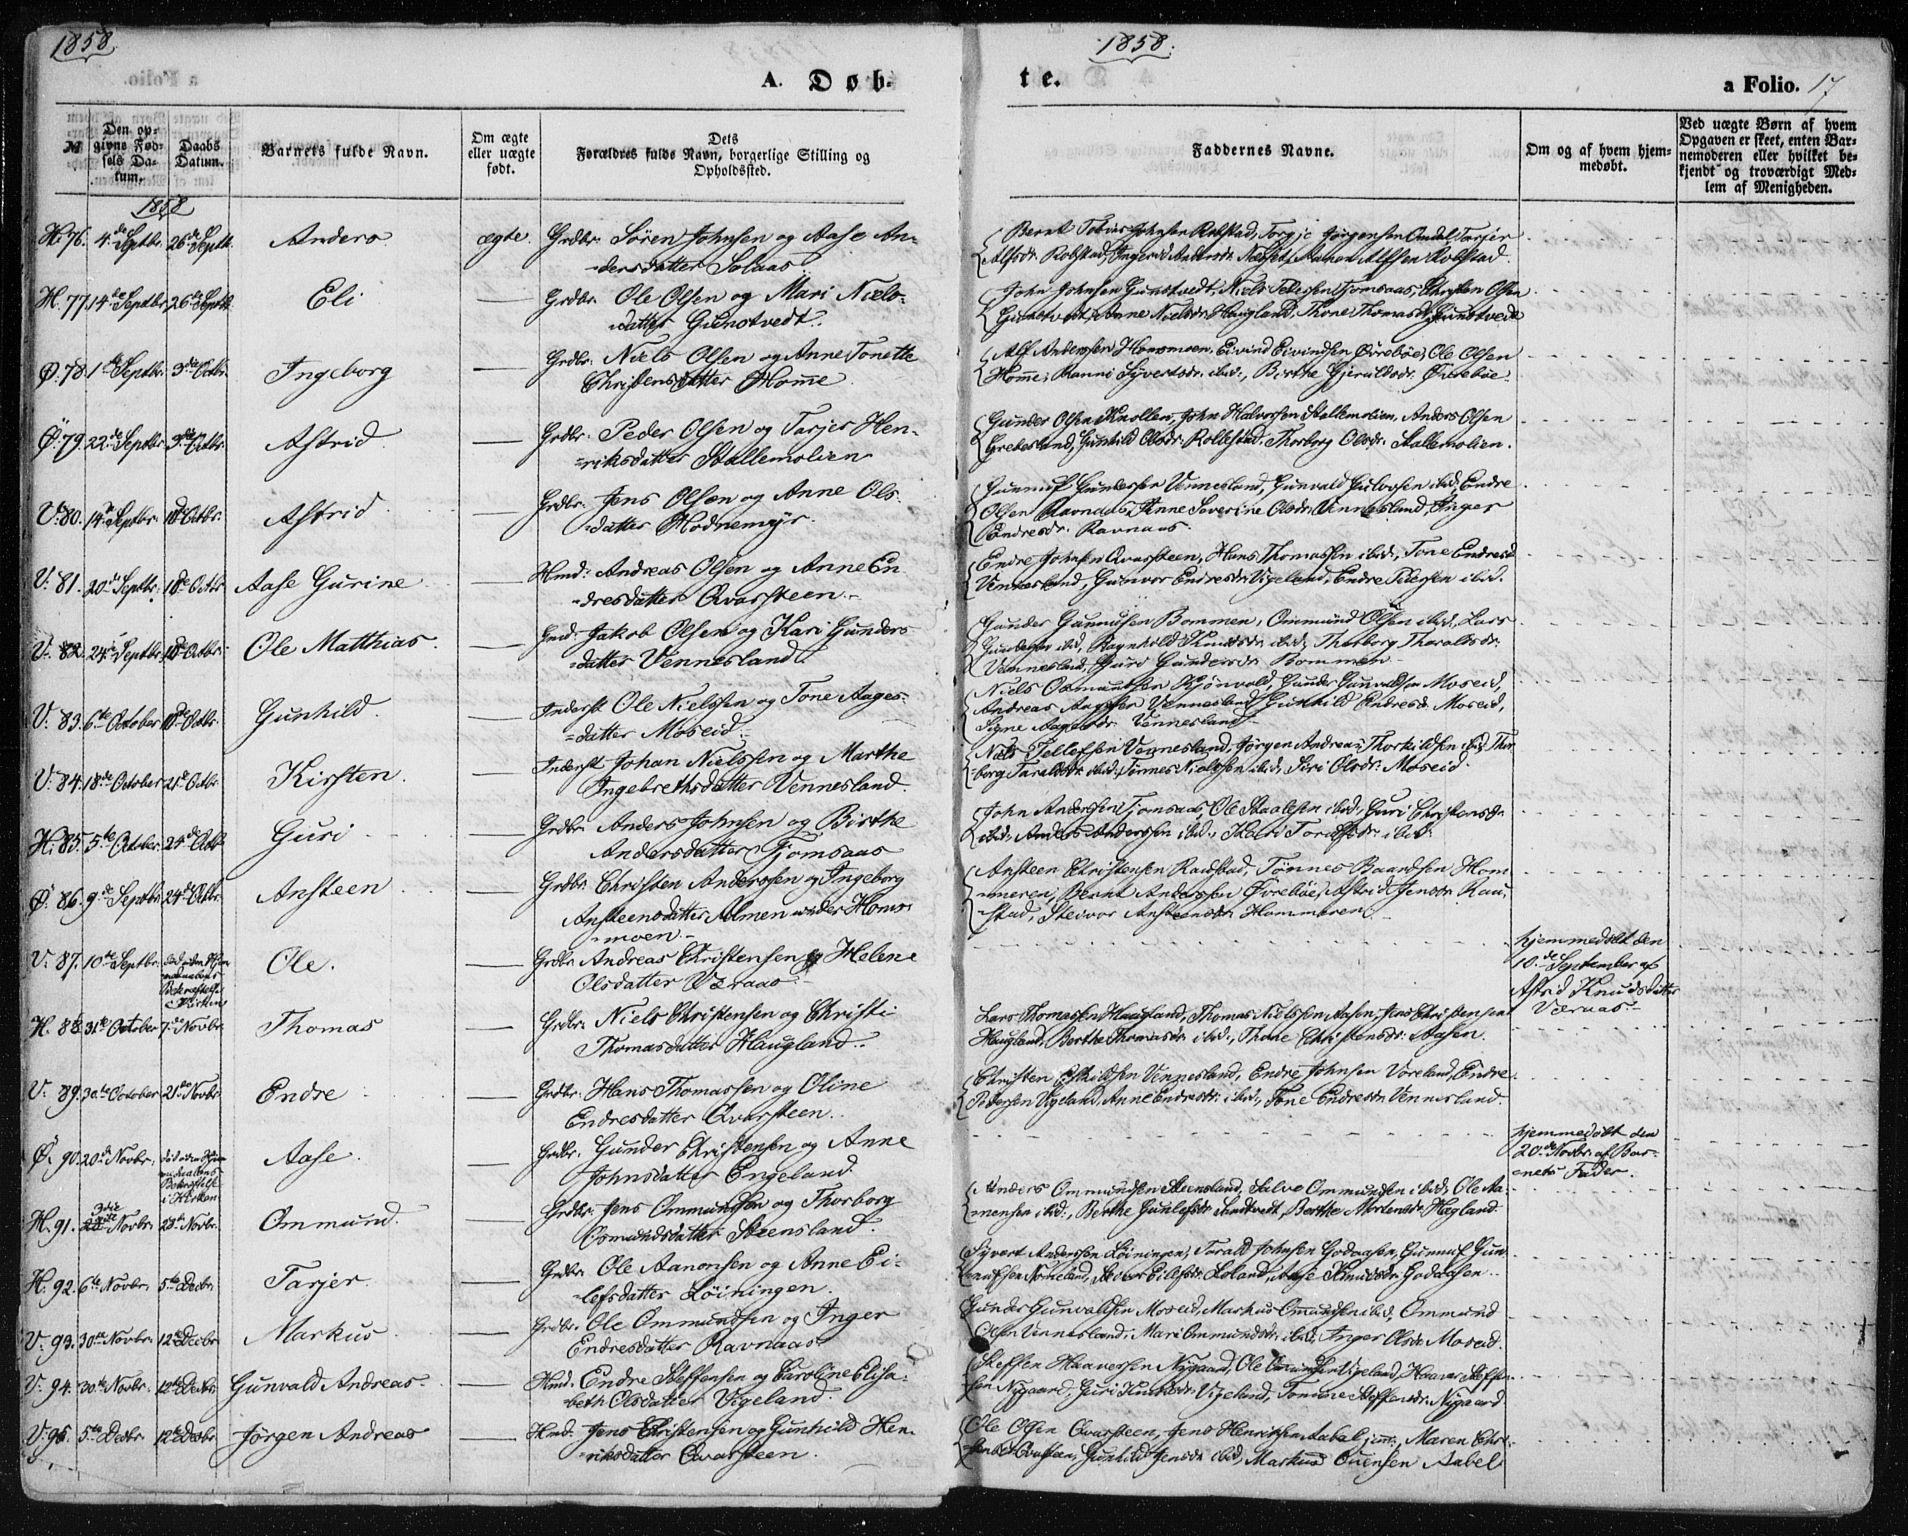 1858.
1858.
a Folio. 17
A. Døb-
te.
№
Den opgivne Fødsels Datum.
Daabs Datum.
Barnets fulde Navn.
Om ægte eller uægte født.
Dets Forældres fulde Navn, borgerlige Stilling og Opholdssted.
Faddernes Navne.
Om og af hvem hjemmedøbt.
Ved uægte Børn af hvem Opgaven er skeet, enten Barnemoderen eller hvilket bekjendt og troværdigt Medlem af Menigheden.
1858
H. 76. 4de Septbr. 26de Septbr. Anders ægte. Grdbr. Sören Johnsen og Aase An-
dersdatter Solaas
Bernt Tobias Johnsen Robstad, Torgje Jörgensen Omdal, Tarjer
Alfsdr. Robstad, Ingerid Andersdr. Aamon Alfsen Robstad.
H. 77. 14de Septbr. 26de Septbr. Eli — Grdbr. Ole Olsen og Mari Niels-
datter Gunstvedt.
John Johnsen Gunstvedt, Niels Pedersen Fjomsaas, Christen Olsen
Gunstvedt, Anne Nielsdr. Haugland, Thone Thomasdr. Gunstvedt
Ø. 78. 1ste Septbr. 3die Octbr. Ingeborg — Grdbr. Niels Olsen og Anne Tonette
Christensdatter Homme.
Alf Andersen Homsmoen, Eivind Eivindsen Øvrebøe, Ole Olsen
Homme, Ranni Syvertsdr. ibid., Birthe Gjeruldsdr. Øvrebøe.
Ø. 79. 22de Septbr. 3die Octbr. Astrid — Grdbr. Peder Olsen og Tarjer Hen-
riksdatter Stallemolien
Gunder Olsen Knollen, John Halvorsen Stallemolien, Anders Olsen
Grebesland, Gunhild Olsdr. Rollestad, Thorborg Olsdr. Stallemolien.
V. 80. 14de Septbr. 10de Octbr. Astrid — Grdbr. Jens Olsen og Anne Ols-
datter Hodnemyr.
Gunnuf Gundersen Vennesland, Gunvald ibid. Endre
Olsen Ravnaas, Anne Severine Olsdr. Vennesland, Inger
Endresdr. Ravnaas.
V. 81. 20de Septbr. 10de Octbr. Aase Gurine — Hmd. Andreas Olsen og Anne En-
dresdatter Qvarsteen.
Endre Johnsen Qvarsteen, Hans Thomassen ibid., Tone Endresd.
Vennesland, Gunvor Endresdr. Vigeland, Endre Pedersen ibid.
V. 82. 24de Septbr. 10de Octbr. Ole Matthias. — Grdbr. Jakob Olsen og Kari Gunders-
datter Vennesland.
Gunder Gunnufsen Bommen, Ommund Olsen ibid., Lars
Gundersen ibid., Ragnhild Knudsdr. ibid., Thorborg Tharaldsdr.
Vennesland, Guro Gundersdr. Bommen
V. 83. 6te October 10de Octbr. Gunhild. — Inderst Ole Nielssen og Tone Aages-
datter Moseid.
Niels Osmundsen Kjønvold, Gunder Gunvaldsen Moseid,
Andreas Aagesen Vennesland, Gunhild Endresdr. Moseid,
Signe Aagesdr. Vennesland
V. 84. 18de October 21de Octbr. Kirsten. — Inderst Johan Nielssen og Marthe
Ingebrethsdatter Vennesland.
Niels Tellefsen Vennesland, Jörgen Andreas Thorkildsen ibid., Thor-
borg Taraldsdr. ibid., Tönnes Nielssen ibid., Siri Olsdr. Moseid.
H. 85. 5te October. 24de Octbr. Guri — Grdbr. Anders Johnsen og Birthe
Andersdatter Fjomsaas
John Andersen Fjomsaas, Ole Staalesen ibid., Guri Christensdr.
ibid., Anders Andersen ibid.,
Ø. 86. 9de Septbr. 24de Octbr. Ansteen — Grdbr. Christen Anderssen og Ingeborg
Ansteensdatter Almen under Homs-
moen.
Ansteen Christensen Raustad, Tønnes Baardsen Hom-
meren, Bernt Anderssen Øvrebøe, Astrid Jensdr. Rau-
stad, Stevor Ansteensdr. Hommeren
V. 87. 10de Septbr. død uden Daabens Bekræftelse i Kirken Ole. — Grdbr. Andreas Christensen og Helene
Olsdatter Væraas
hjemmedøbt den
10de September af
Astrid Knudsdatter
Væraas.
H. 88. 31te October 7de Novbr. Thomas — Grdbr. Niels Christensen og Christi
Thomasdatter Haugland.
Lars Thomassen Haugland, Thomas Nielssen Aasen, Jens Christensen
Haugland, Berthe Thomasdr. ibid., Thone Christensdr. Aasen.
V. 89. 30te October 21de Novbr. Endre — Grdbr. Hans Thomassen og Oline
Endresdatter Qvarsteen.
Christen Eskildsen Vennesland, Endre Johnsen Voreland, Endre
Pedersen Vigeland, Anne Endresdr. ibid., Tone Endresdr. Vennesland.
Ø. 90. 20de Novbr. død uden Daabens Bekræftelse i Kirken Aase. — Grdbr. Gunder Christensen og Anne
Johnsdatter Engeland.
hjemmedøbt den
20de Novbr. af Bar-
nets Fader.
H. 91. 3die Novbr. 28de Novbr. Ommund. — Grdbr. Jens Ommundsen og Thorborg
Osmundsdatter Steensland.
Anders Ommundsen Steensland, Salve Ommundsen ibid., Ole Aa-
mensen ibid., Berthe Gunlefsdr. Berthe Mortensdr. Hægland
H. 92. 6te Novbr. 5te Decbr. Tarjer. — Grdbr. Ole Aanonsen og Anne Ei-
lefsdatter Löiningen.
Syvert Anderssen Löiningen, Tarald Johnsen Godaasen, Gunnuf Gun-
Aase Knudsdr. Godaasen.
V. 93. 30te Novbr. 12te Decbr. Markus — Grdbr. Ole Ommundsen og Inger
Endresdatter Ravnaas
Gunder Gunvaldsen Moseid, Markus Omundsen ibid., Ommund
Olsen Vennesland, Mari Ommundsdr. ibid., Inger Olsdr. Moseid.
V. 94. 30te Novbr. 12te Decbr. Gunvald Andreas. — Hmd. Endre Steffensen og Caroline Elisa-
beth Olsdatter Vigeland
Steffen Haaversen Nygaard, Ole Vigeland, Haaver Steffen-
sen Nygaard, Guri Knudsdr. Vigeland, Tomine Steffensdr. Nygaard
V. 95. 5te Decbr. 12te Decbr. Jørgen Andreas — Hmd. Jens Christensen og Gunhild Hen-
riksdatter Qvarsteen.
Ole Olsen Qvarsteen, Jens Henriksen Aabel, Maren
Qvarsteen, Gunhild Jensdr. ibid., Markus Evensen Aabel